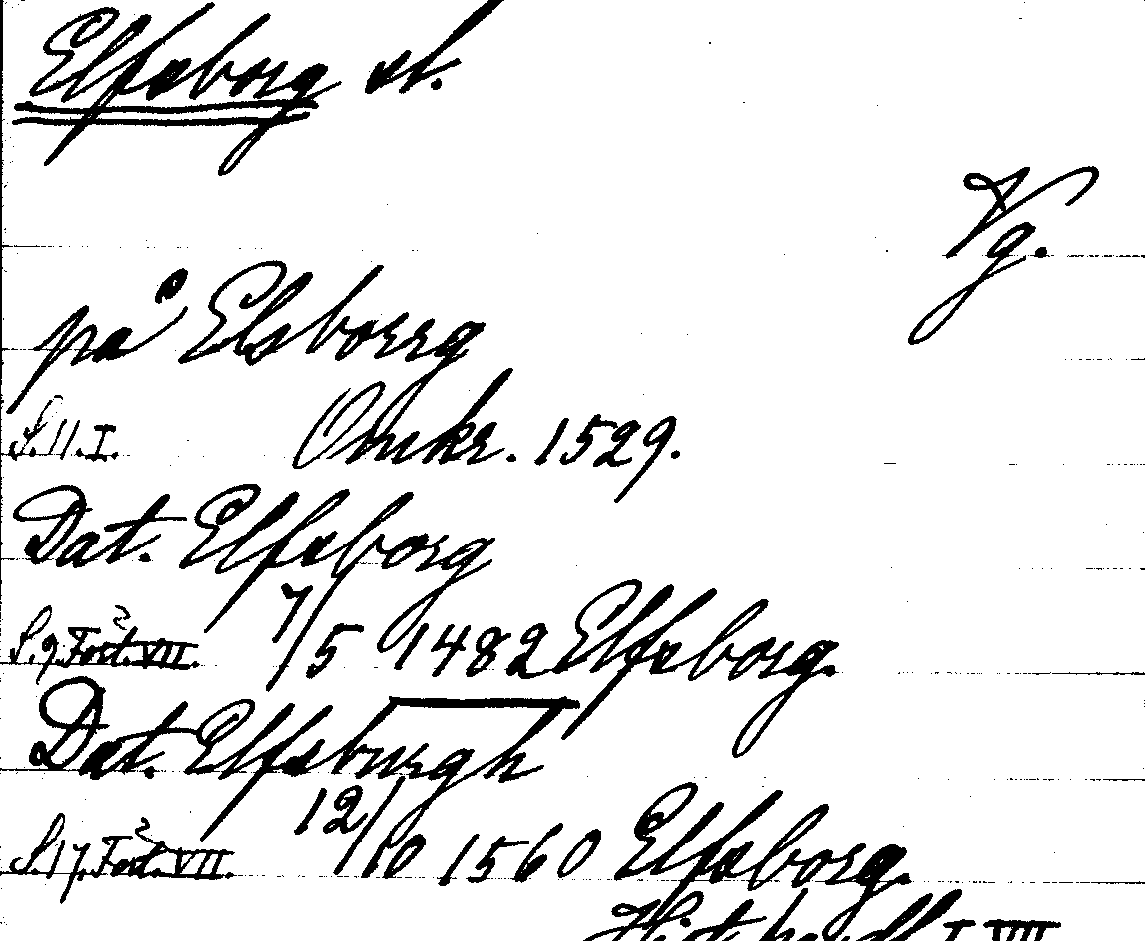 Elfsborg sl.
Vg.
på Elsborrg
S. 11. I. Omkr. 1529.
Dat. Elfsborg
S. 9. Fört. VII. 7/5 1482 Elfsborg.
Dat. Elfsburgh
S. 17. Fört. VII. 12/10 1560 Elfsborg.
Hist. handl. I VIII